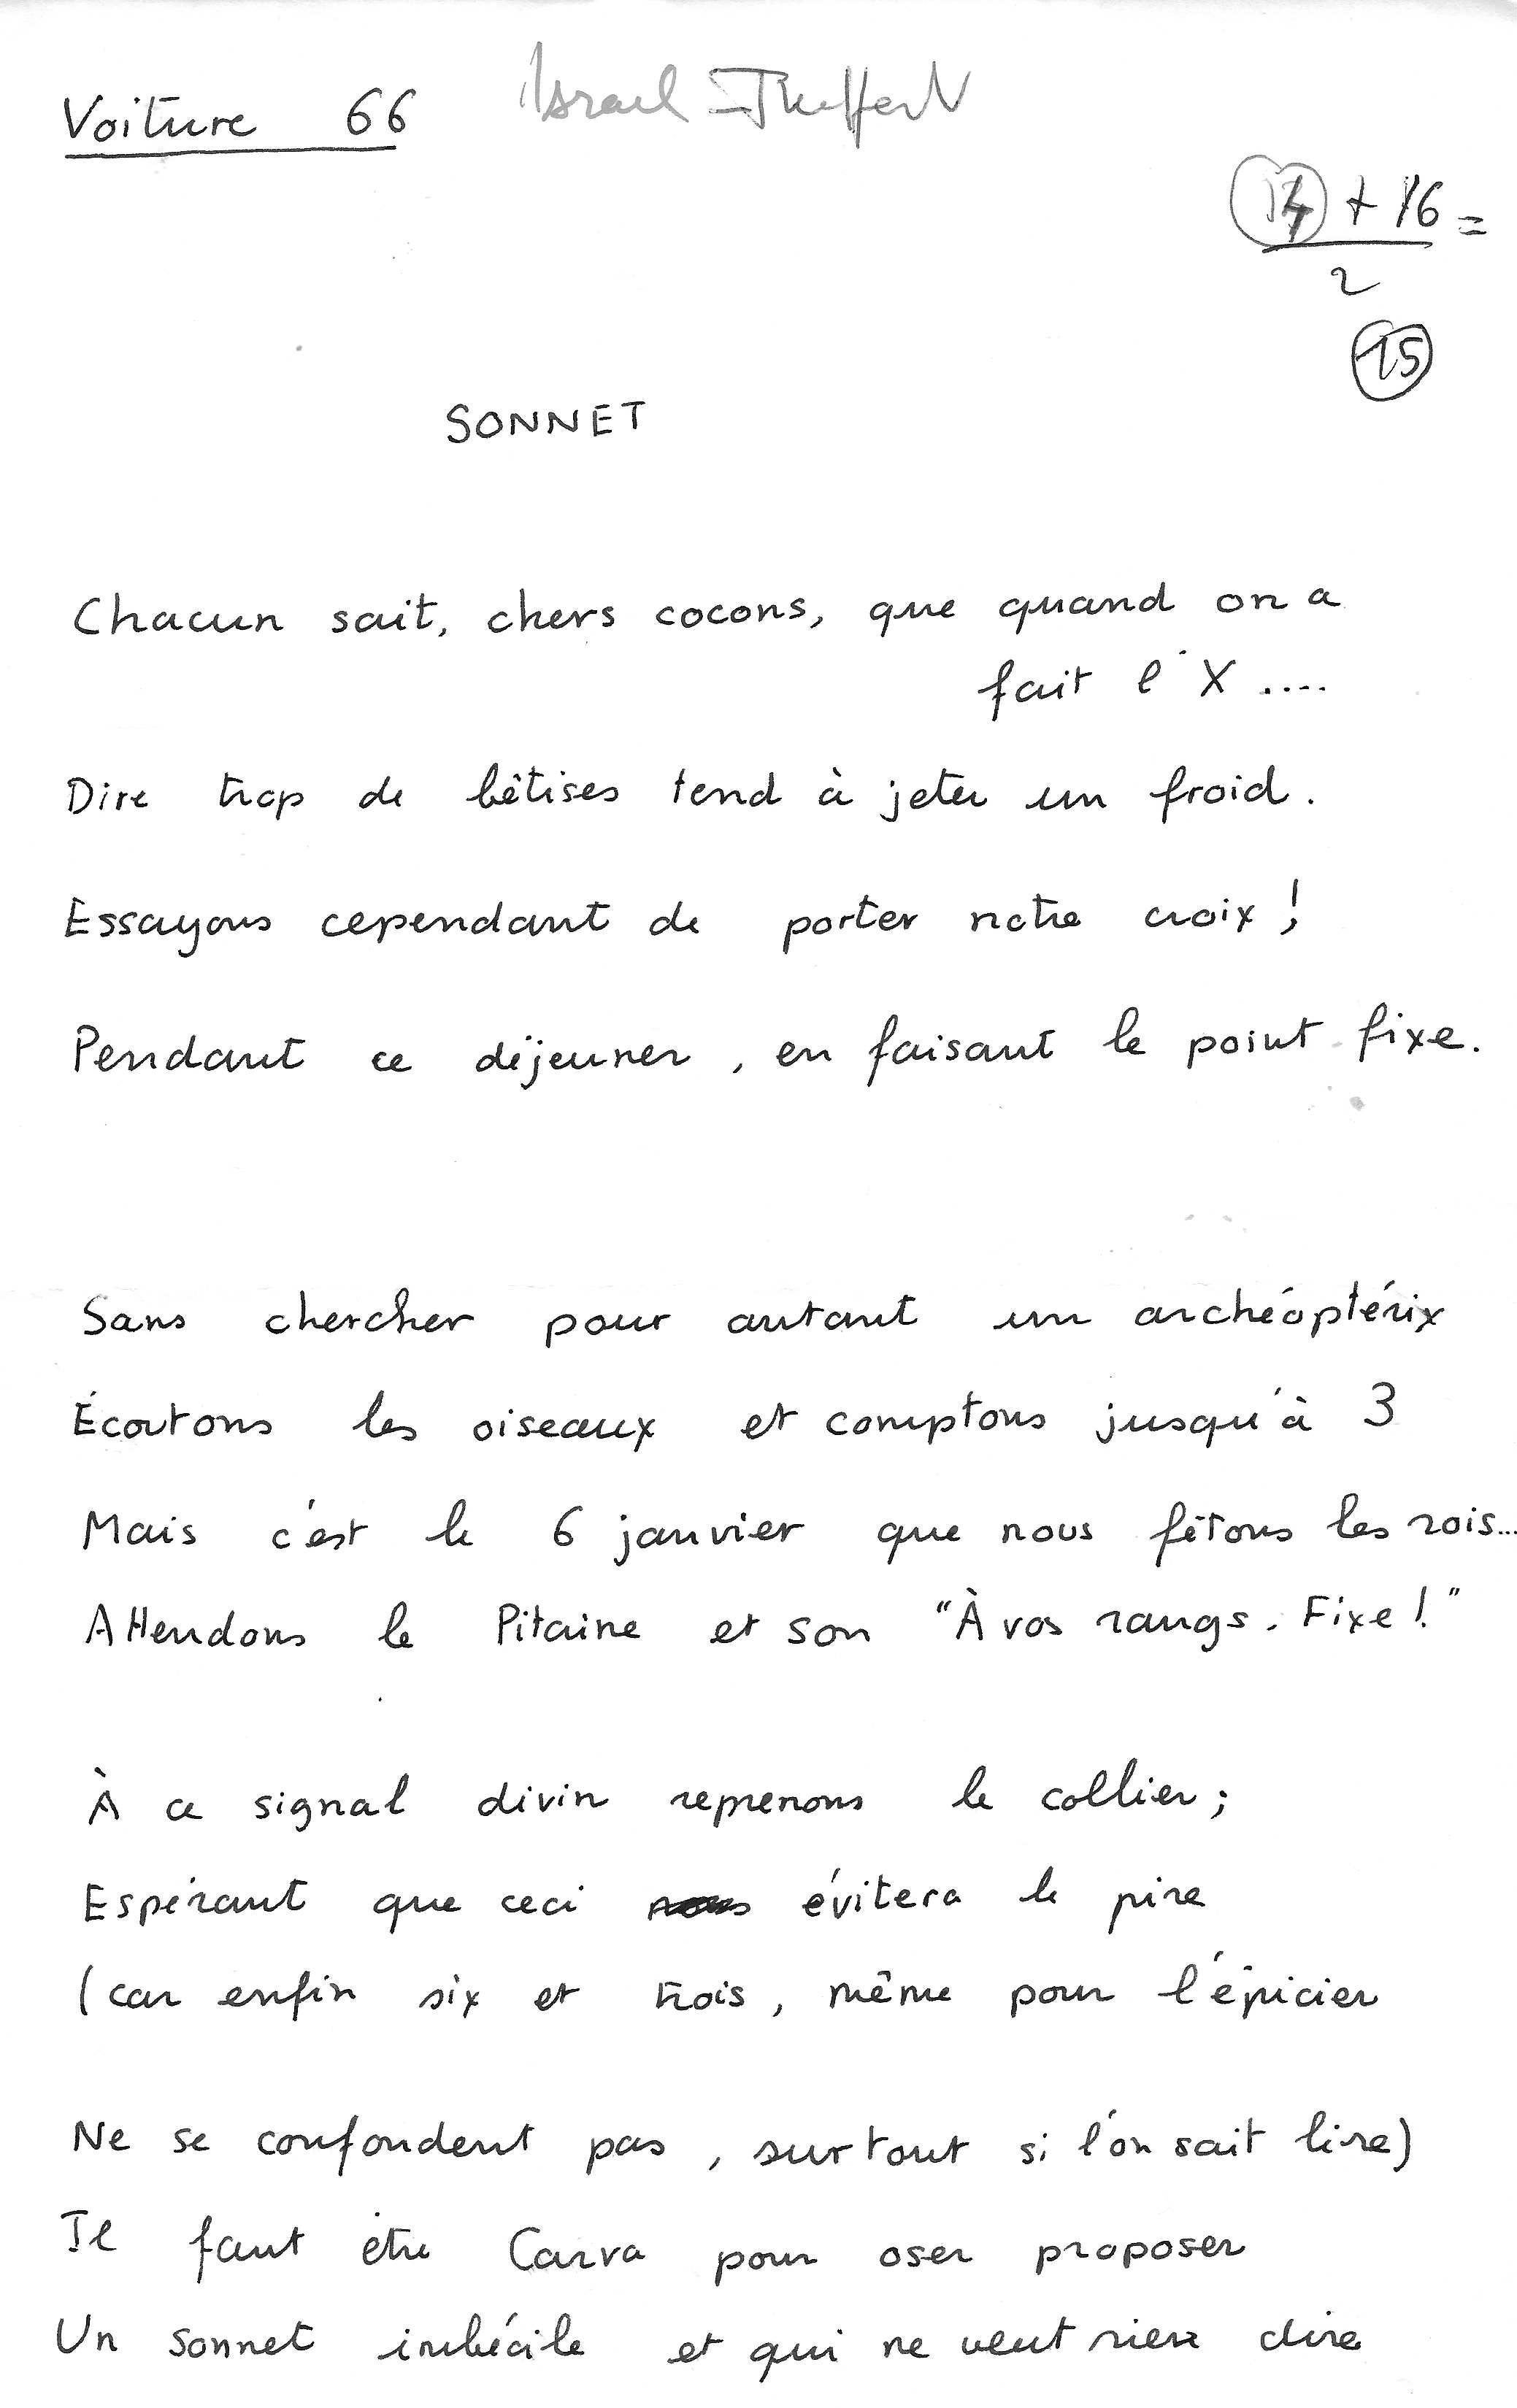 Voiture 66
Israel
14 + 16 =
2
15
SONNET
Chacun sait, chers cocons, que quand on a
fait l'X ....
Dire trop de bêtises tend à jeter un froid.
Essayons cependant de porter notre croix !
Pendant ce déjeuner, en faisant le point fixe.
Sans chercher pour autant un archéoptérix
Écoutons les oiseaux et comptons jusqu'à 3
Mais c'est le 6 janvier que nous fêtons les rois...
Attendons le Pitaine et son "À vos rangs. Fixe !"
À ce signal divin reprenons le collier ;
Espérant que ceci évitera le pire
(car enfin six et trois, même pour l'épicier
Ne se confondent pas, surtout si l'on sait lire)
Il faut être Carva pour oser proposer
Un sonnet imbécile et qui ne veut rien dire